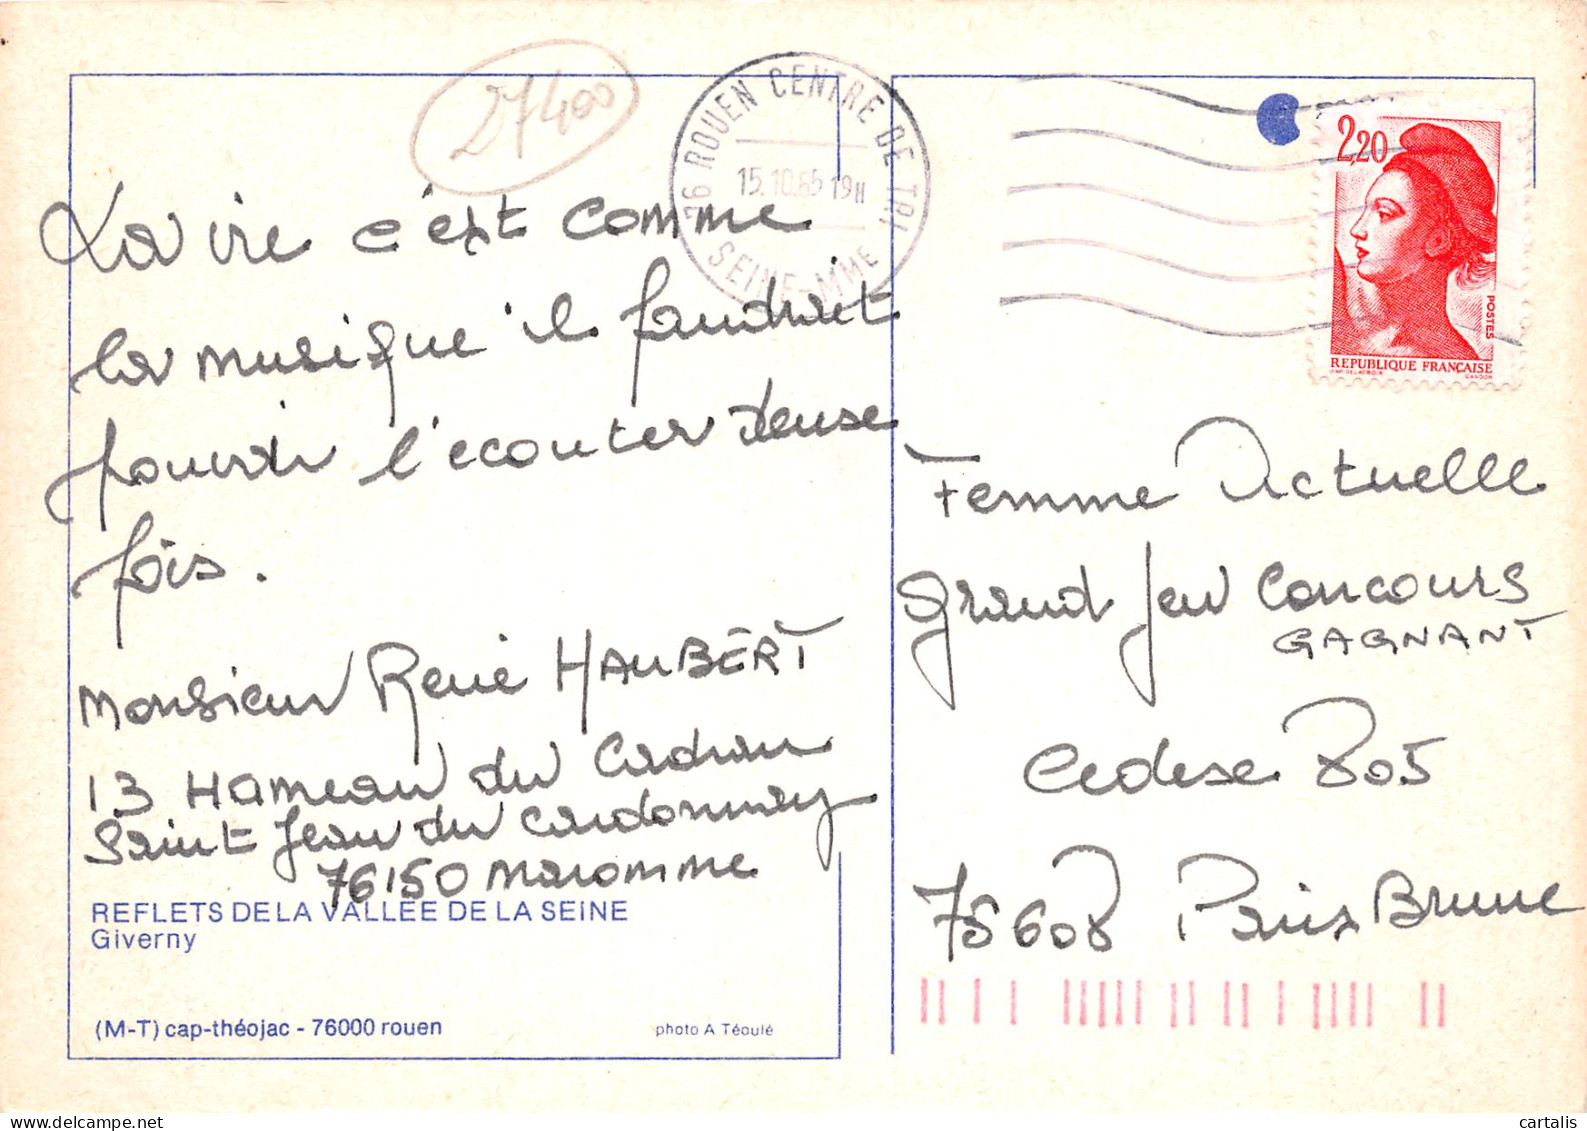 27400
76 ROUEN CENTRE DE TRI
15.10.85 19H
SEINE-MME
2,20
POSTES
REPUBLIQUE FRANÇAISE
La vie c'est comme
la musique il faudrait
pouvoir l'ecouter deuse
fois.
Monsieur René HAUBERT
13 Hameau du Cadran
Saint Jean du Cardonnay
76150 Maromme
REFLETS DE LA VALLEE DE LA SEINE
Giverny
(M-T) cap-théojac - 76000 rouen
photo A Téoulé
Femme Actuelle
Grand Jeu Concours
GAGNANT
Cedex 805
75608 Paris Brune
cartalis